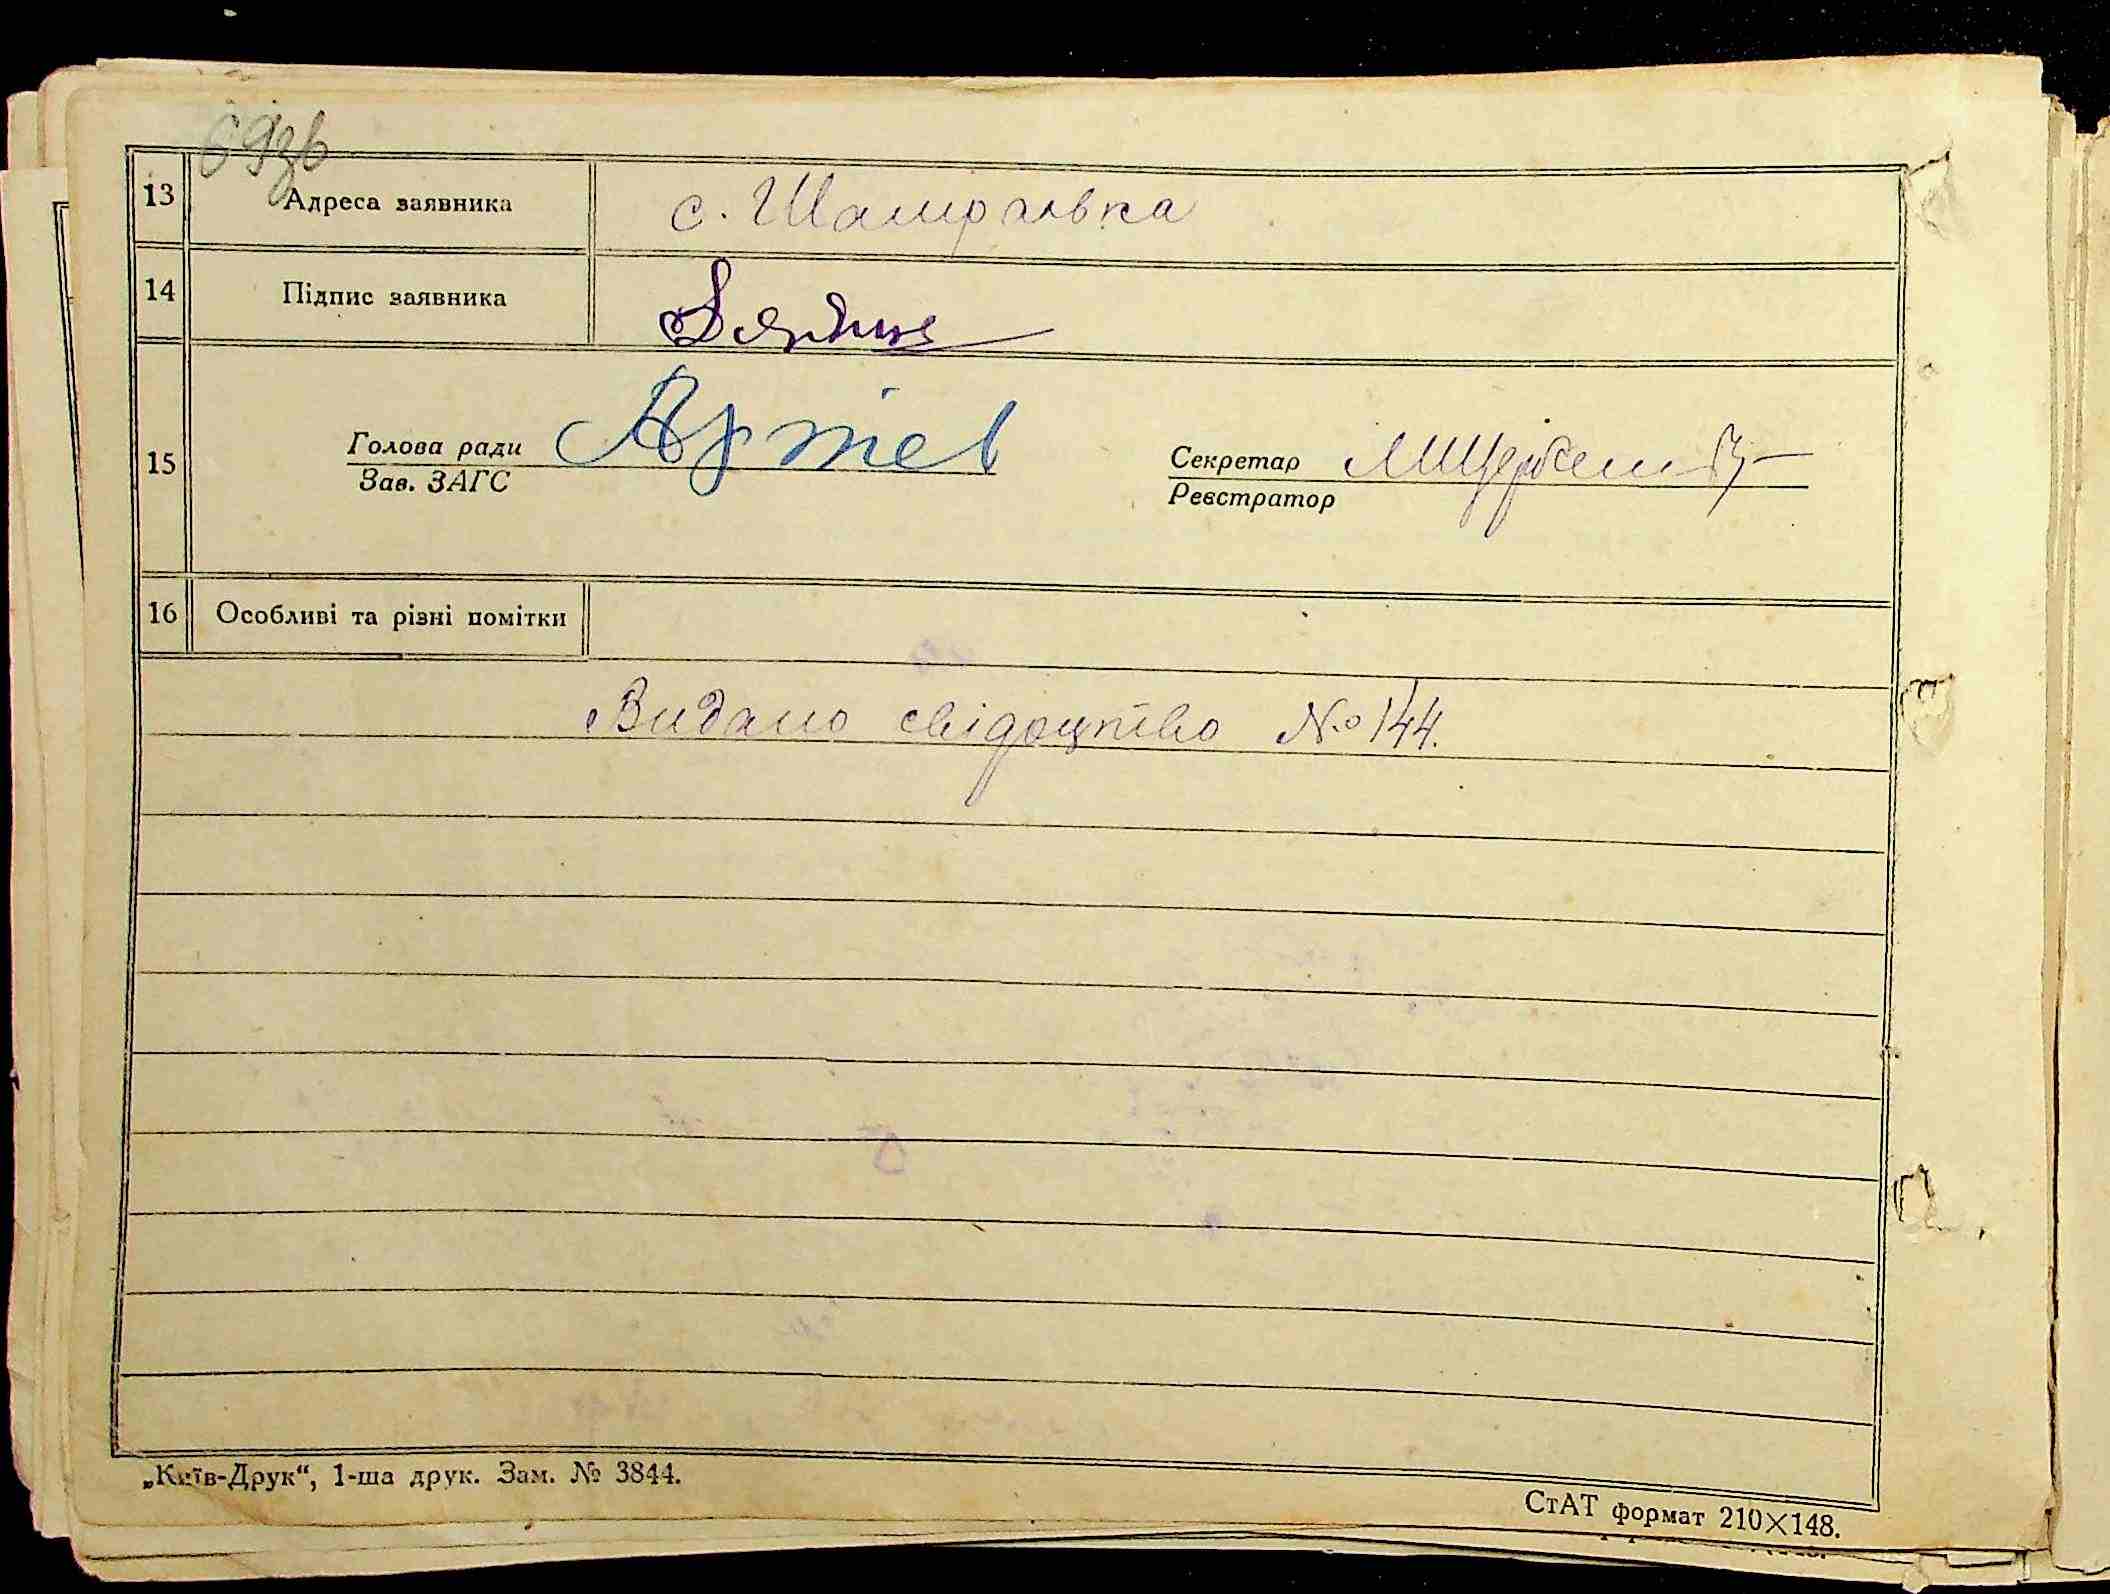 69зв
13 Адреса заявника с. Шамраївка
14 Підпис заявника
15 Голова ради
Зав. ЗАГС
Секретар
Реєстратор
16 Особливі та різні помітки
Видано свідоцтво № 144.
„Київ-Друк“, 1-ша друк. Зам. № 3844.
СтАТ формат 210×148.